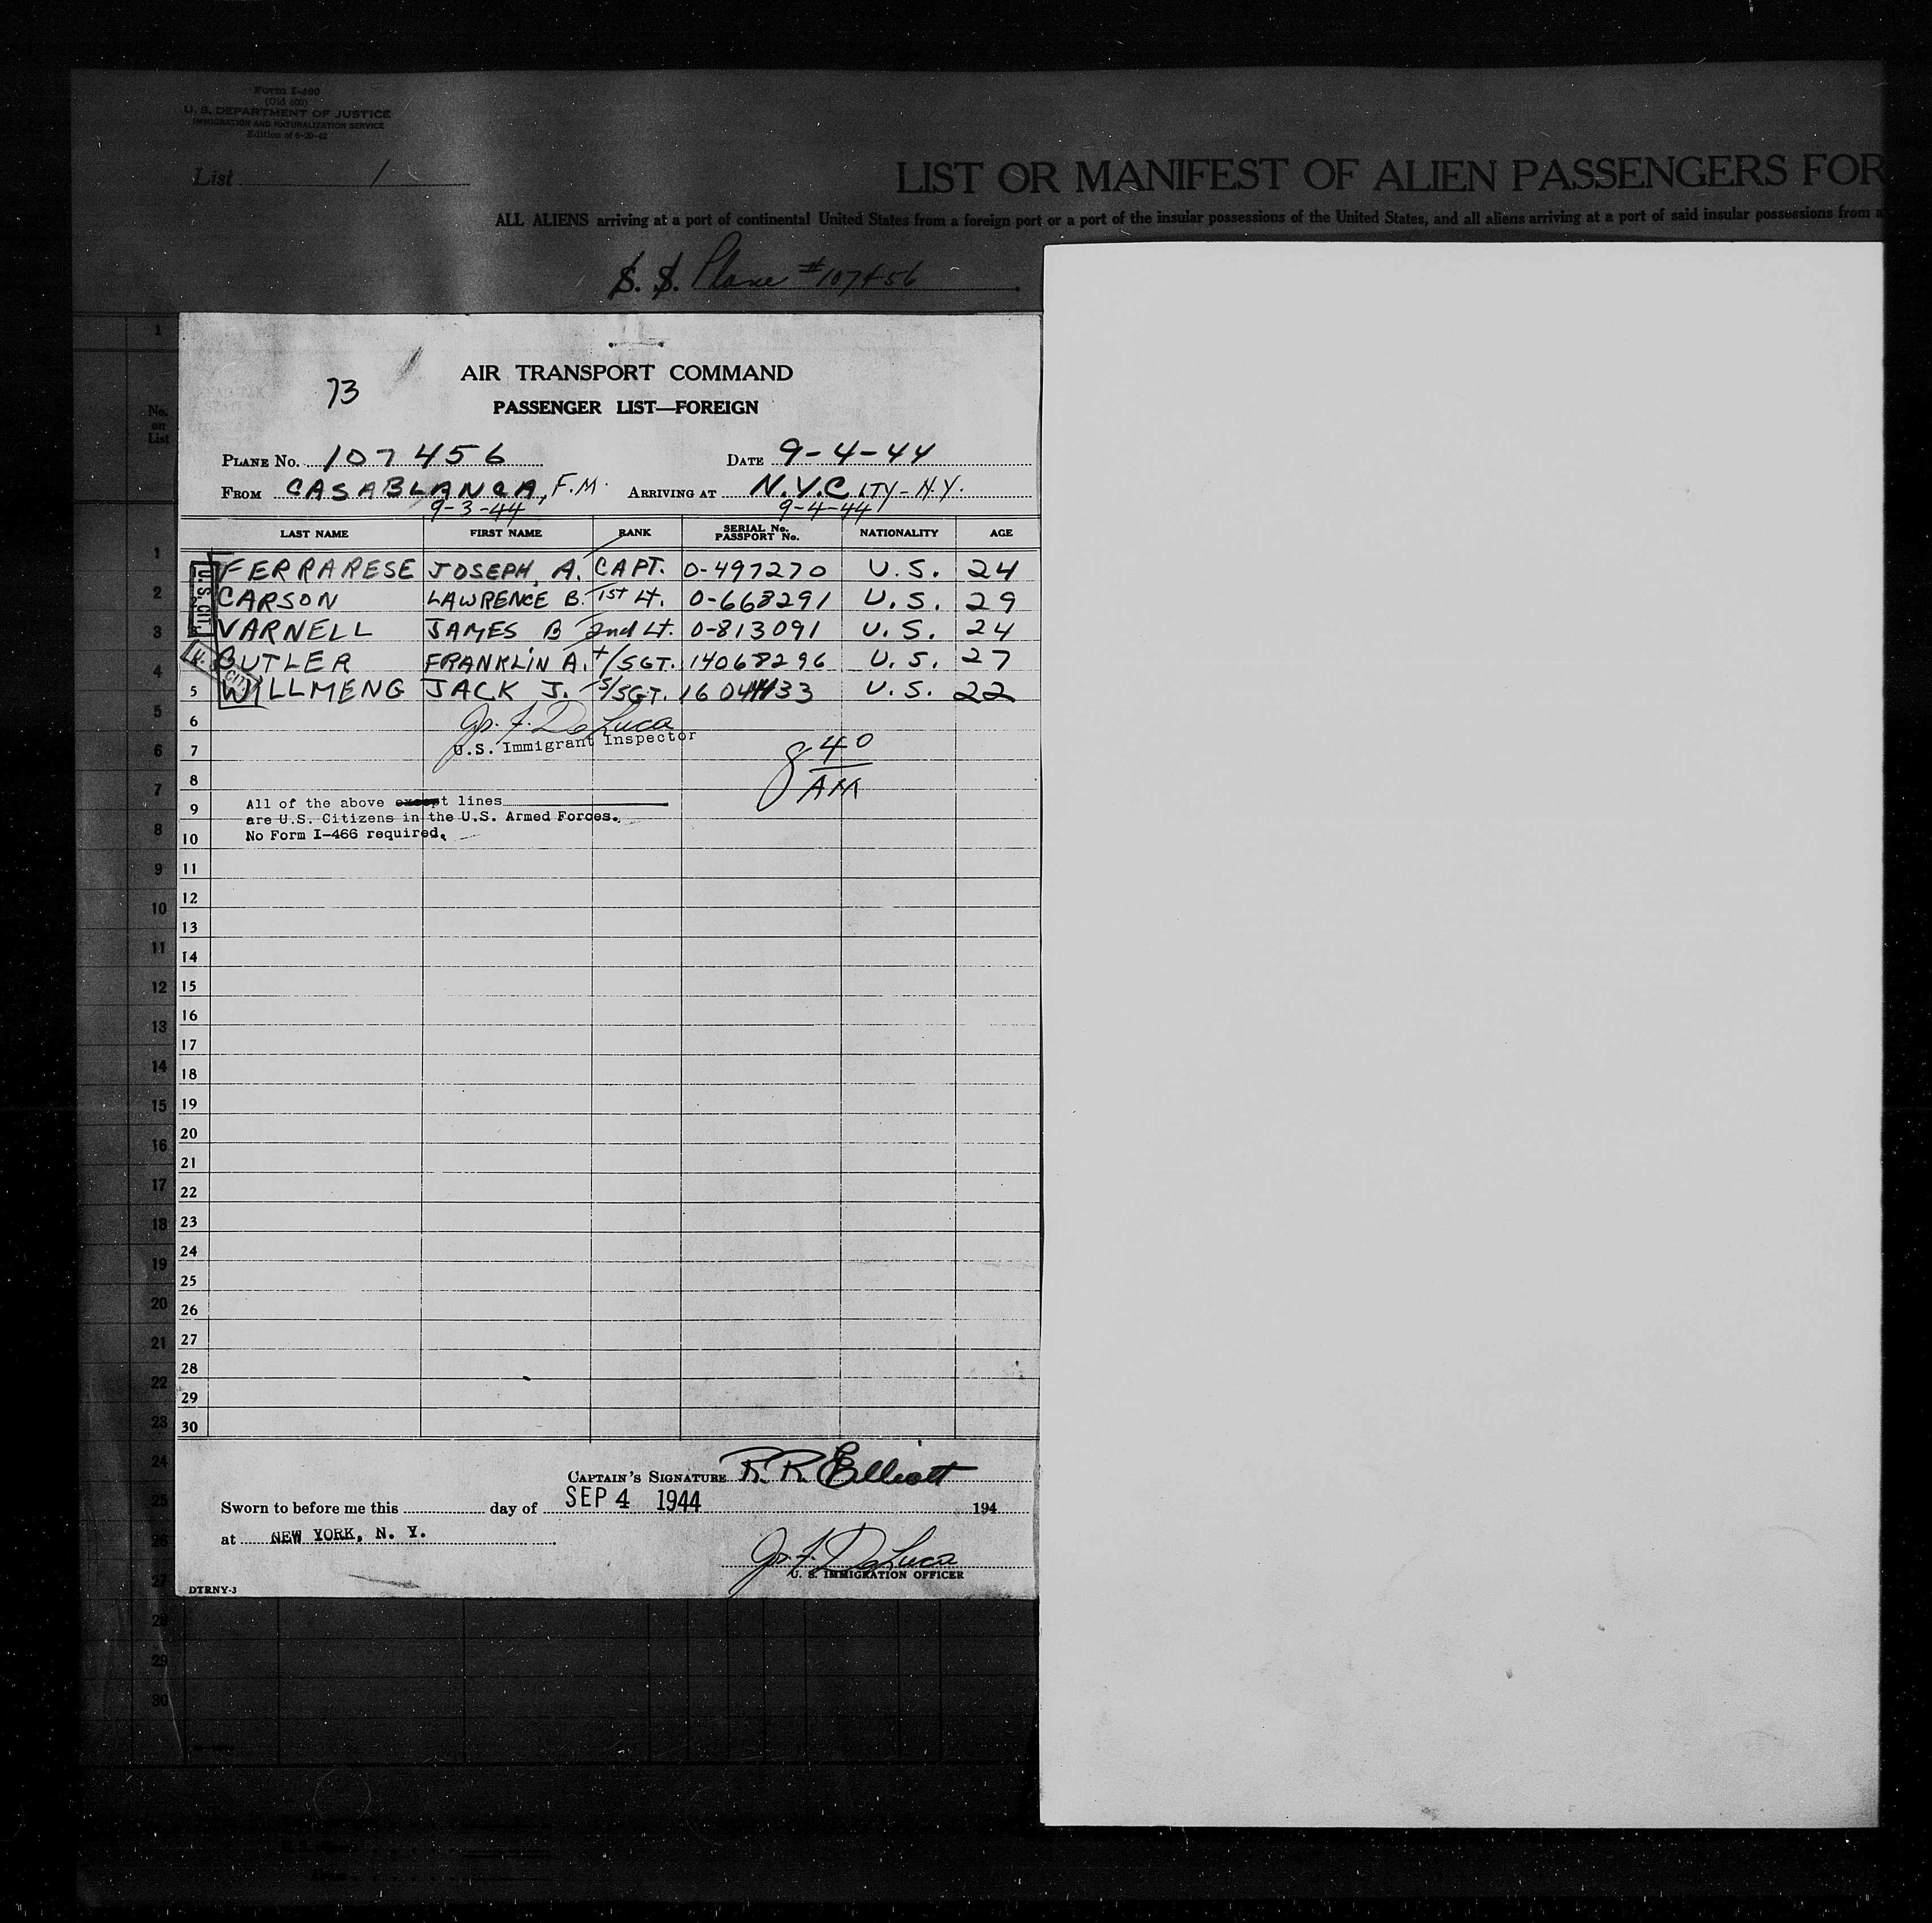 Form I-460
(Old 500)
U. S. DEPARTMENT OF JUSTICE
IMMIGRATION AND NATURALIZATION SERVICE
Edition of 6-20-42
List 1
LIST OR MANIFEST OF ALIEN PASSENGERS FOR
ALL ALIENS arriving at a port of continental United States from a foreign port or a port of the insular possessions of the United States, and all aliens arriving at a port of said insular possessions from a
S. S. Plane #107456
No. on List
73
AIR TRANSPORT COMMAND
PASSENGER LIST—FOREIGN
PLANE No. 107456 DATE 9-4-44
FROM CASABLANCA, F.M. ARRIVING AT N.Y.CITY-N.Y.
9-3-44 9-4-44
LAST NAME FIRST NAME RANK SERIAL No. PASSPORT No. NATIONALITY AGE
U.S. CIT.
1 FERRARESE JOSEPH, A. CAPT. O-497270 U.S. 24
2 CARSON LAWRENCE B. 1st Lt. O-668291 U.S. 29
3 VARNELL JAMES B 2nd Lt. O-813091 U.S. 24
4 BUTLER FRANKLIN A. t/SGT. 14068296 U.S. 27
5 WILLMENG JACK J. S/SGT. U.S. 22
6 Jos. F. DeLuca
7 U.S. Immigrant Inspector
8 40
AM
8
9 All of the above except lines
are U.S. Citizens in the U.S. Armed Forces.
10 No Form I-466 required.
11
12
13
14
15
16
17
18
19
20
21
22
23
24
25
26
27
28
29
30
CAPTAIN'S SIGNATURE R. R. Elliott
Sworn to before me this day of SEP 4 1944 194
at NEW YORK, N. Y.
Jos. F. DeLuca
U. S. IMMIGRATION OFFICER
DTRNY-3